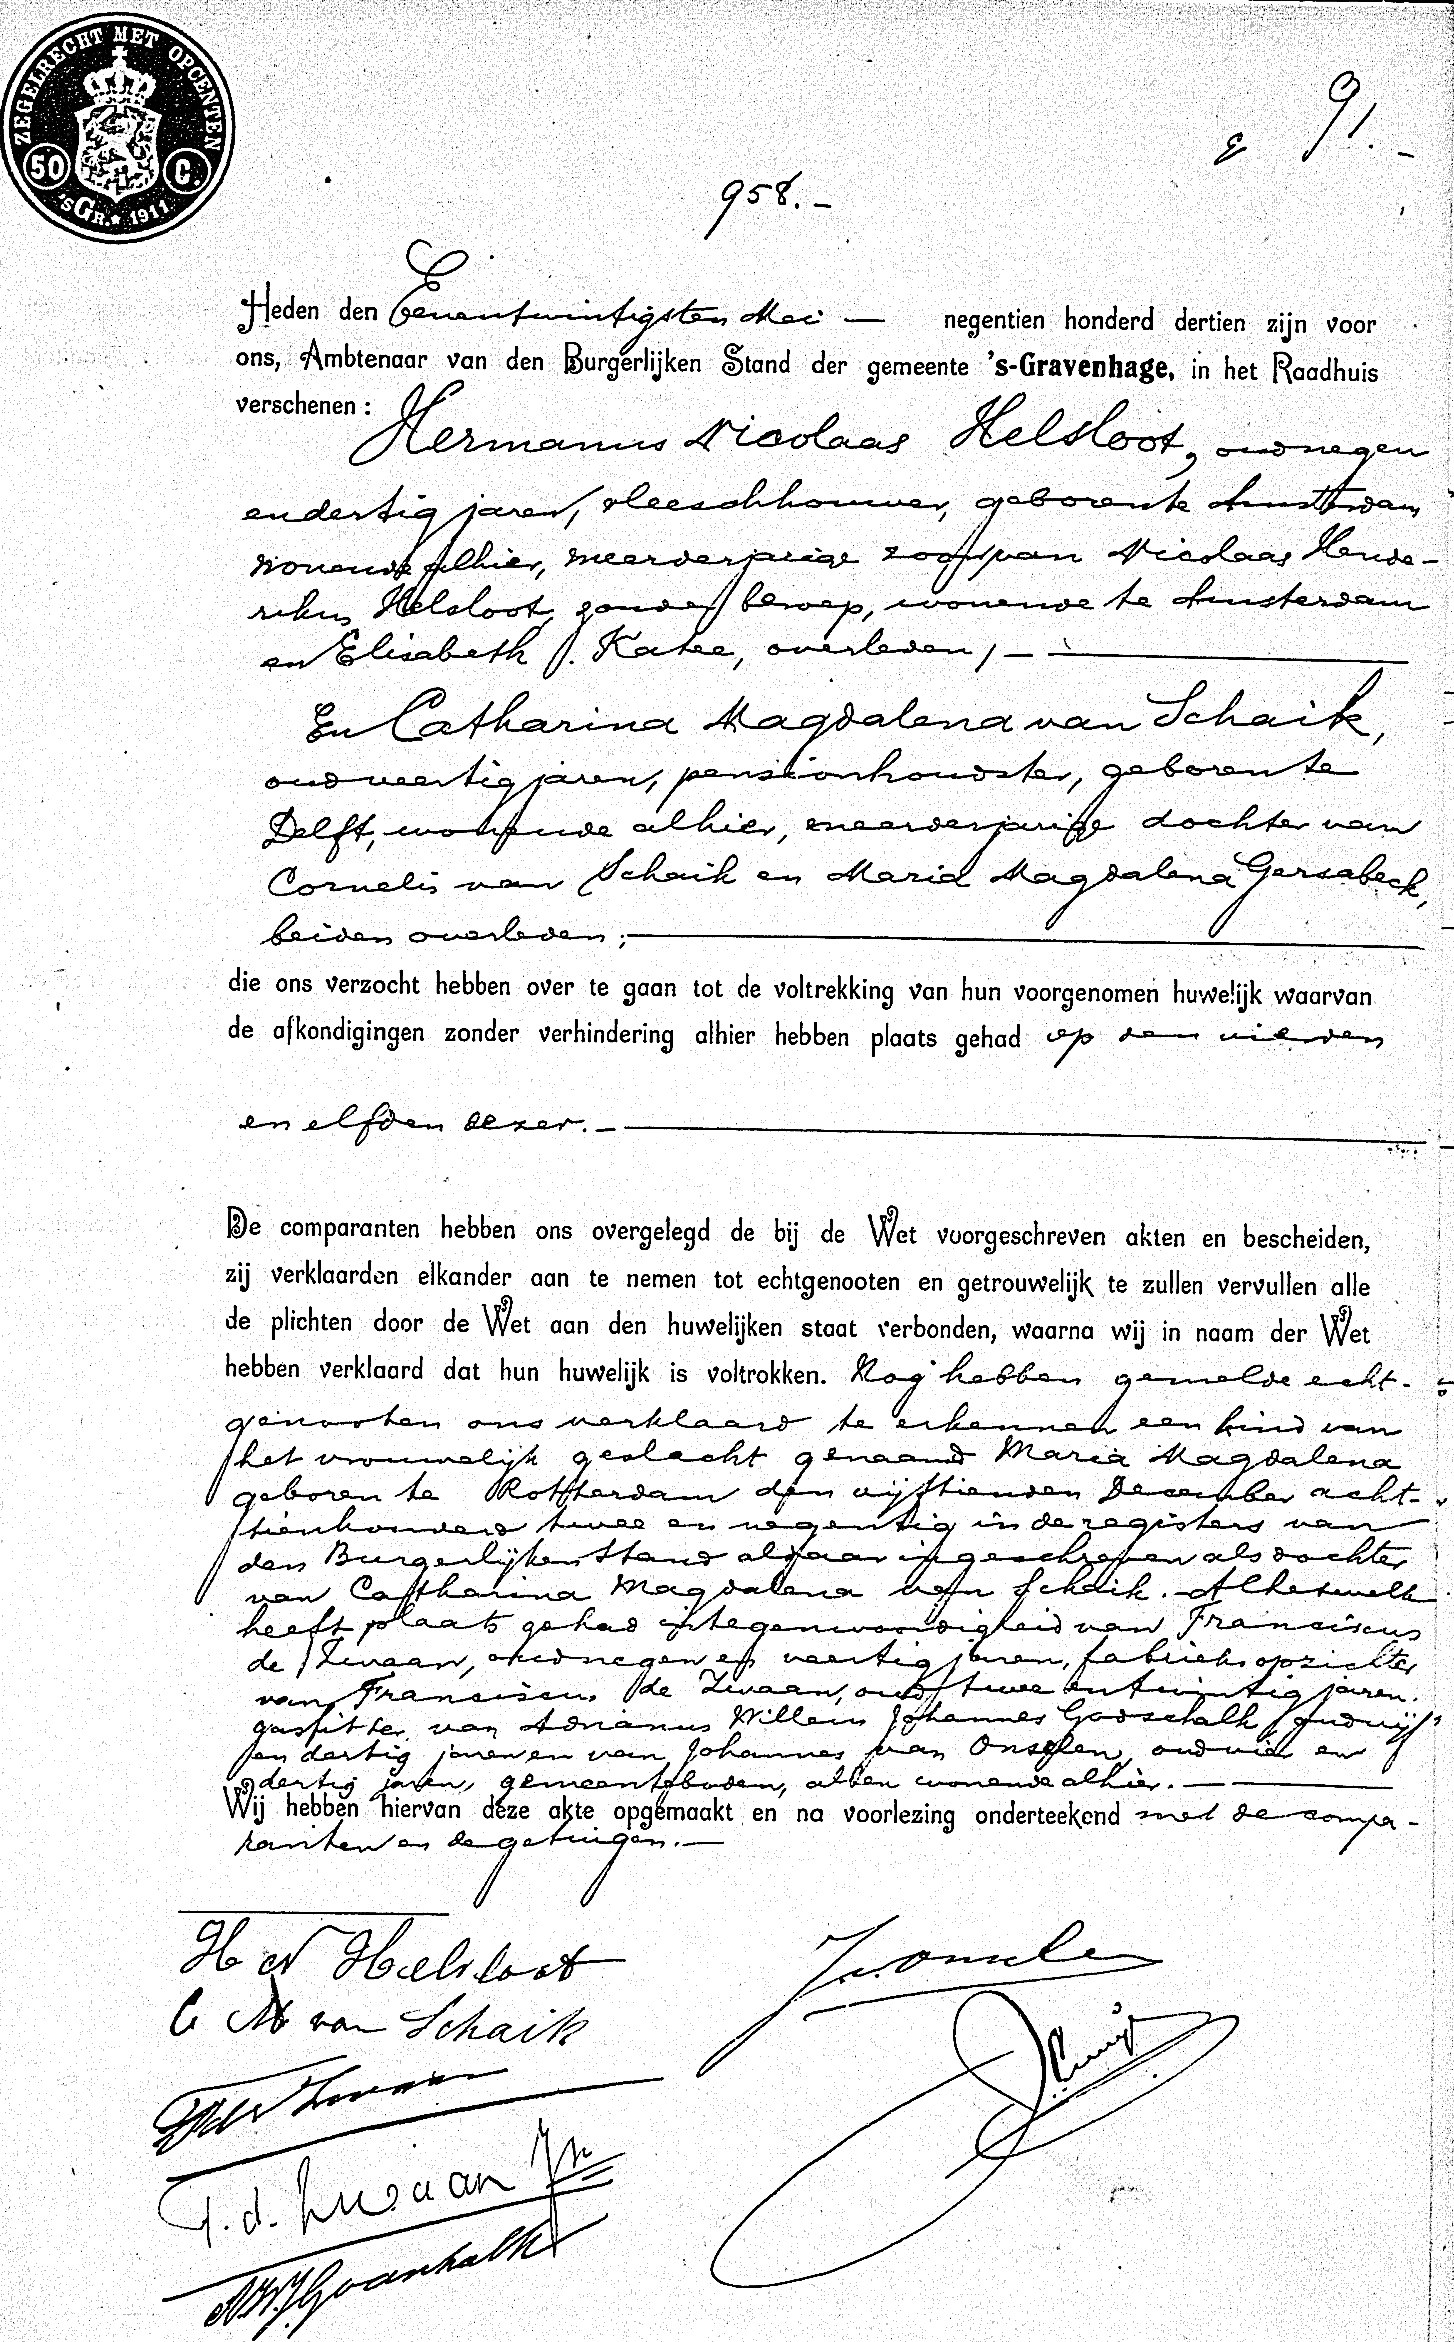 ZEGELRECHT MET OPCENTEN
50 C.
'sGR. ★ 1911
91.-
958.-
Heden den Eenentwintigsten Mei — negentien honderd dertien zijn voor
ons, Ambtenaar van den Burgerlijken Stand der gemeente 's-Gravenhage, in het Raadhuis
verschenen :
Hermanus Nicolaas Helsloot, oud negen
en dertig jaren, vleeschhouwer, geboren te Amsterdam
wonende alhier, meerderjarige zoon van Nicolaas Hende-
rikus Helsloot, zonder beroep, wonende te Amsterdam
en Elisabeth Katee, overleden, —
En Catharina Magdalena van Schaik,
oud veertig jaren, pensionhoudster, geboren te
Delft, wonende alhier, meerderjarige dochter van
Cornelis van Schaik en Maria Magdalena Gersabeck,
beiden overleden ; —
die ons verzocht hebben over te gaan tot de voltrekking van hun voorgenomen huwelijk waarvan
de afkondigingen zonder verhindering alhier hebben plaats gehad op den vierden
en elfden dezer. —
De comparanten hebben ons overgelegd de bij de Wet voorgeschreven akten en bescheiden,
zij verklaarden elkander aan te nemen tot echtgenooten en getrouwelijk te zullen vervullen alle
de plichten door de Wet aan den huwelijken staat verbonden, waarna wij in naam der Wet
hebben verklaard dat hun huwelijk is voltrokken. Nog hebben gemelde echt-
genooten ons verklaard te erkennen een kind van
het vrouwelijk geslacht genaamd Maria Magdalena
geboren te Rotterdam den vijftienden December acht-
tienhonderd twee en negentig in de registers van
den Burgerlijken Stand aldaar ingeschreven als dochter
van Catharina Magdalena van Schaik. Al hetwelk
heeft plaats gehad in tegenwoordigheid van Franciscus
de Zwaan, oud negen en veertig jaren, fabrieksopzichter
van Franciscus de Zwaan, oud twee en twintig jaren.
gasfitter, van Adrianus Willem Johannes Godschalk, oud vijf
en dertig jaren en van Johannes van Onselen, oud vier en
dertig jaren, gemeenteboden, allen wonende alhier. —
Wij hebben hiervan deze akte opgemaakt en na voorlezing onderteekend met de compa-
ranten en de getuigen. —
H N Helsloot
J v. Onselen
C M van Schaik
F de Zwaan
F. d. Zwaan Jr
A.W.J. Godschalk